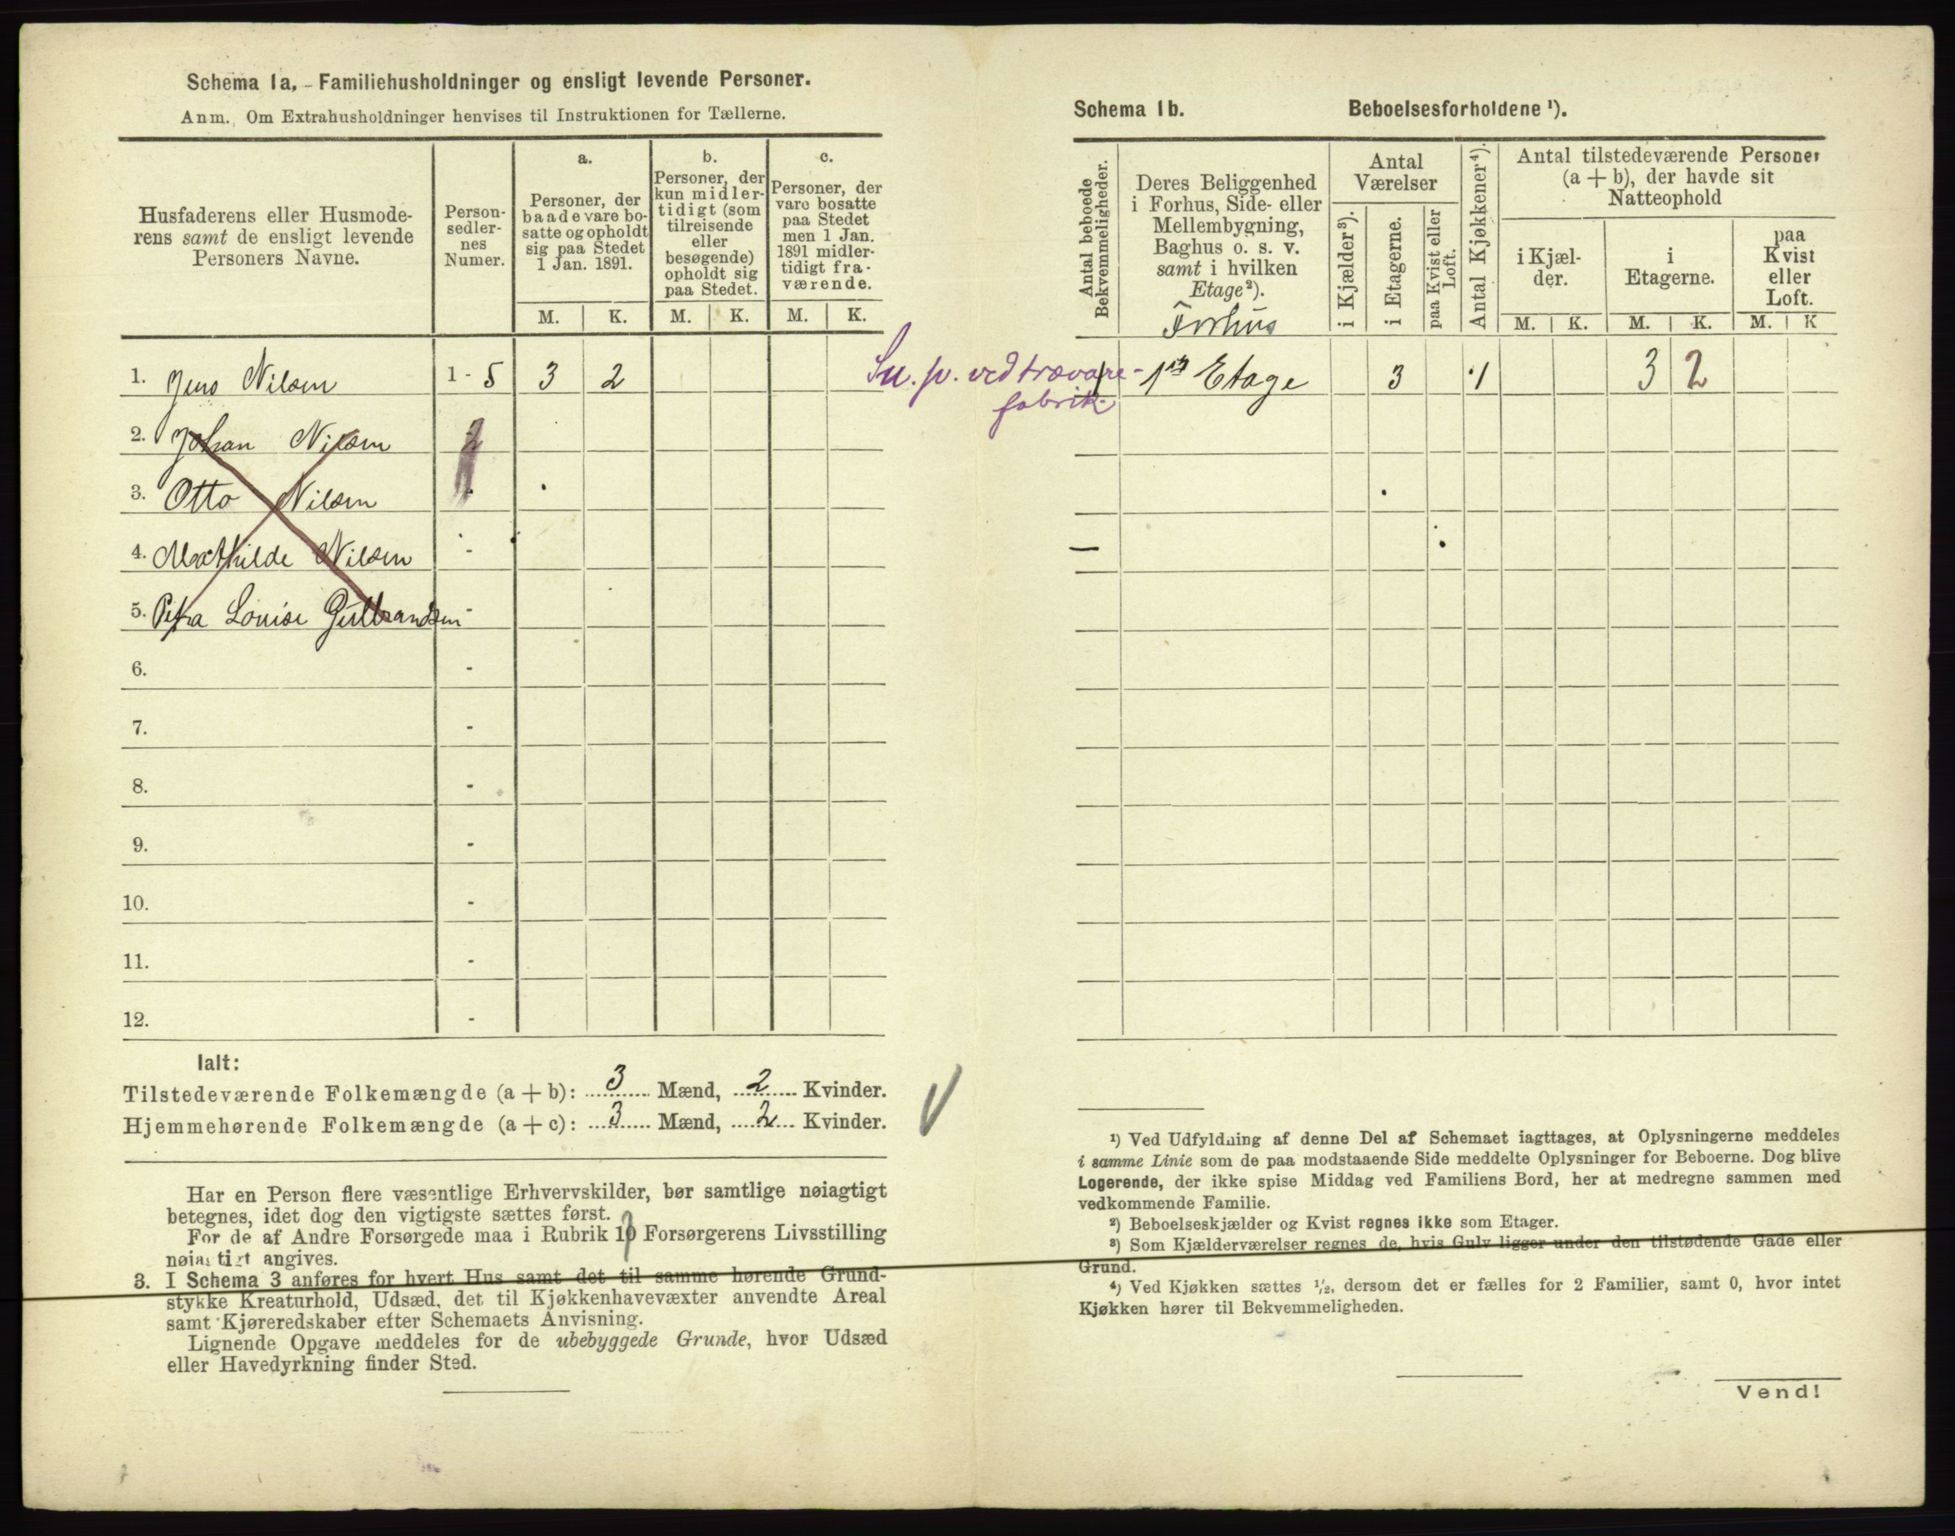 Schema 1a, - Familiehusholdninger og ensligt levende Personer.
Anm. Om Extrahusholdninger henvises til Instruktionen for Tællerne.
Husfaderens eller Husmode-
rens samt de ensligt levende
Personers Navne.
Person-
sedler-
nes
Numer.
a.
Personer, der
baade vare bo-
satte og opholdt
sig paa Stedet
1 Jan. 1891.
b.
Personer, der
kun midler-
tidigt (som
tilreisende
eller
besøgende)
opholdt sig
paa Stedet.
c.
Personer, der
vare bosatte
paa Stedet
men 1 Jan.
1891 midler-
tidigt fra-
værende.
M. K. M. K. M. K.
1. Jens Nilsen 1 - 5 3 2
2. Johan Nilsen 2
3. Otto Nilsen
4. Mathilde Nilsen -
5. Petra Louise Gulbrandsen -
6. -
7. -
8. -
9. -
10. -
11. -
12. -
Ialt:
Tilstedeværende Folkemængde (a + b): 3 Mænd, 2 Kvinder.
Hjemmehørende Folkemængde (a + c): 3 Mænd, 2 Kvinder.
Har en Person flere væsentlige Erhvervskilder, bør samtlige nøiagtigt
betegnes, idet dog den vigtigste sættes først.
For de af Andre Forsørgede maa i Rubrik 10 Forsørgerens Livsstilling
nøiagtigt angives.
3. I Schema 3 anføres for hvert Hus samt det til samme hørende Grund-
stykke Kreaturhold, Udsæd, det til Kjøkkenhavevæxter anvendte Areal
samt Kjøreredskaber efter Schemaets Anvisning.
Lignende Opgave meddeles for de ubebyggede Grunde, hvor Udsæd
eller Havedyrkning finder Sted.
Schema 1b. Beboelsesforholdene ¹).
Antal beboede
Bekvemmeligheder.
Deres Beliggenhed
i Forhus, Side- eller
Mellembygning,
Baghus o. s. v.
samt i hvilken
Etage²).
Forhus
Antal
Værelser
i Kjælder³).
i Etagerne.
paa Kvist eller
Loft.
Antal Kjøkkener⁴).
Antal tilstedeværende Personer
(a + b), der havde sit
Natteophold
i Kjæl-
der.
i
Etagerne.
paa
Kvist
eller
Loft.
M. K. M. K. M. K
Su. p. ved trævare-
fabrik.
1 1ste Etage 3 1 3 2
¹) Ved Udfyldning af denne Del af Schemaet iagttages, at Oplysningerne meddeles
i samme Linie som de paa modstaaende Side meddelte Oplysninger for Beboerne. Dog blive
Logerende, der ikke spise Middag ved Familiens Bord, her at medregne sammen med
vedkommende Familie.
²) Beboelseskjælder og Kvist regnes ikke som Etager.
³) Som Kjælderværelser regnes de, hvis Gulv ligger under den tilstødende Gade eller
Grund.
⁴) Ved Kjøkken sættes ½, dersom det er fælles for 2 Familier, samt 0, hvor intet
Kjøkken hører til Bekvemmeligheden.
Vend!